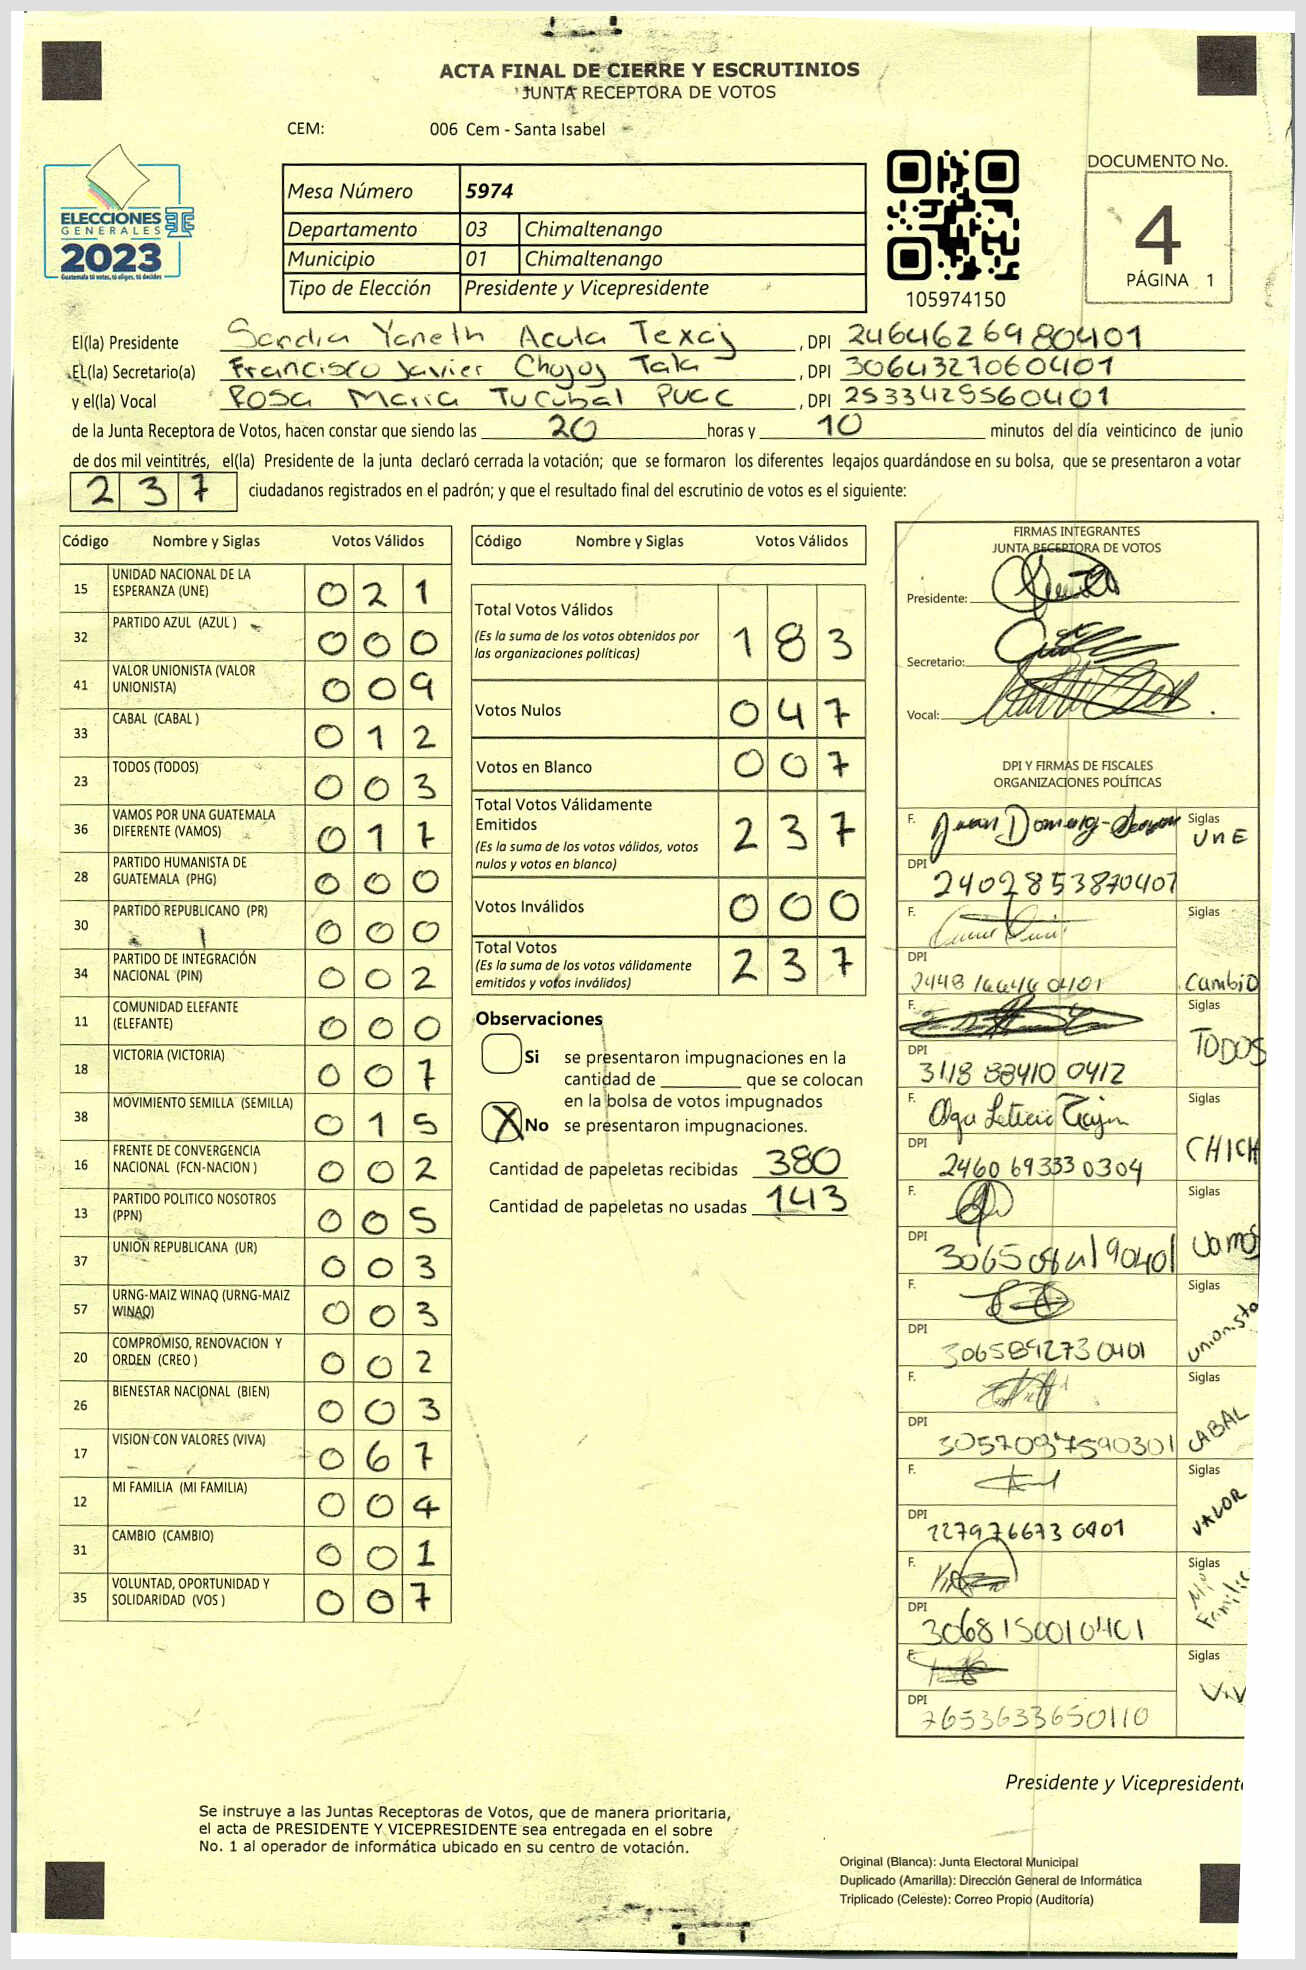 ACTA FINAL DE CIERRE Y ESCRUTINIOS
JUNTA RECEPTORA DE VOTOS
CEM: 006 Cem - Santa Isabel
ELECCIONES
GENERALES
2023
Guatemala tú votas, tú eliges, tú decides
Mesa Número 5974
Departamento 03 Chimaltenango
Municipio 01 Chimaltenango
Tipo de Elección Presidente y Vicepresidente
105974150
DOCUMENTO No.
4
PÁGINA 1
El(la) Presidente Sandra Yaneth Acula Texaj, DPI 2464626980401
EL(la) Secretario(a) Francisco Javier Chojoj Tala, DPI 3064327060401
y el(la) Vocal Rosa Maria Tucubal Puac, DPI 2533429560401
de la Junta Receptora de Votos, hacen constar que siendo las 20 horas y 10 minutos del día veinticinco de junio
de dos mil veintitrés, el(la) Presidente de la junta declaró cerrada la votación; que se formaron los diferentes legajos guardándose en su bolsa, que se presentaron a votar
237 ciudadanos registrados en el padrón; y que el resultado final del escrutinio de votos es el siguiente:
Código Nombre y Siglas Votos Válidos
15 UNIDAD NACIONAL DE LA ESPERANZA (UNE) 021
32 PARTIDO AZUL (AZUL ) 000
41 VALOR UNIONISTA (VALOR UNIONISTA) 009
33 CABAL (CABAL ) 012
23 TODOS (TODOS) 003
36 VAMOS POR UNA GUATEMALA DIFERENTE (VAMOS) 017
28 PARTIDO HUMANISTA DE GUATEMALA (PHG) 000
30 PARTIDO REPUBLICANO (PR) 000
34 PARTIDO DE INTEGRACIÓN NACIONAL (PIN) 002
11 COMUNIDAD ELEFANTE (ELEFANTE) 000
18 VICTORIA (VICTORIA) 007
38 MOVIMIENTO SEMILLA (SEMILLA) 015
16 FRENTE DE CONVERGENCIA NACIONAL (FCN-NACION ) 002
13 PARTIDO POLITICO NOSOTROS (PPN) 005
37 UNION REPUBLICANA (UR) 003
57 URNG-MAIZ WINAQ (URNG-MAIZ WINAQ) 003
20 COMPROMISO, RENOVACION Y ORDEN (CREO ) 002
26 BIENESTAR NACIONAL (BIEN) 003
17 VISION CON VALORES (VIVA) 067
12 MI FAMILIA (MI FAMILIA) 004
31 CAMBIO (CAMBIO) 001
35 VOLUNTAD, OPORTUNIDAD Y SOLIDARIDAD (VOS ) 007
Código Nombre y Siglas Votos Válidos
Total Votos Válidos 183
(Es la suma de los votos obtenidos por
las organizaciones políticas)
Votos Nulos 047
Votos en Blanco 007
Total Votos Válidamente
Emitidos 237
(Es la suma de los votos válidos, votos
nulos y votos en blanco)
Votos Inválidos 000
Total Votos 237
(Es la suma de los votos válidamente
emitidos y votos inválidos)
Observaciones
Si se presentaron impugnaciones en la
cantidad de ________ que se colocan
en la bolsa de votos impugnados
X No se presentaron impugnaciones.
Cantidad de papeletas recibidas 380
Cantidad de papeletas no usadas 143
FIRMAS INTEGRANTES
JUNTA RECEPTORA DE VOTOS
Presidente:
Secretario:
Vocal:
DPI Y FIRMAS DE FISCALES
ORGANIZACIONES POLÍTICAS
F. Juan Siglas UNE
DPI 2402853870407
F. Siglas Cambio
DPI
F. Siglas TODOS
DPI 3118884100412
F. Olga Leticia Siglas CHICH
DPI 2460693330304
F. Siglas Vamos
DPI
F. Siglas Unionista
DPI 3065892730401
F. Siglas CABAL
DPI 3057097590301
F. Siglas VALOR
DPI
F. Siglas Mi Familia
DPI 3068150010401
F. Siglas
DPI 7653633650110
Presidente y Vicepresident
Se instruye a las Juntas Receptoras de Votos, que de manera prioritaria,
el acta de PRESIDENTE Y VICEPRESIDENTE sea entregada en el sobre
No. 1 al operador de informática ubicado en su centro de votación.
Original (Blanca): Junta Electoral Municipal
Duplicado (Amarilla): Dirección General de Informática
Triplicado (Celeste): Correo Propio (Auditoría)